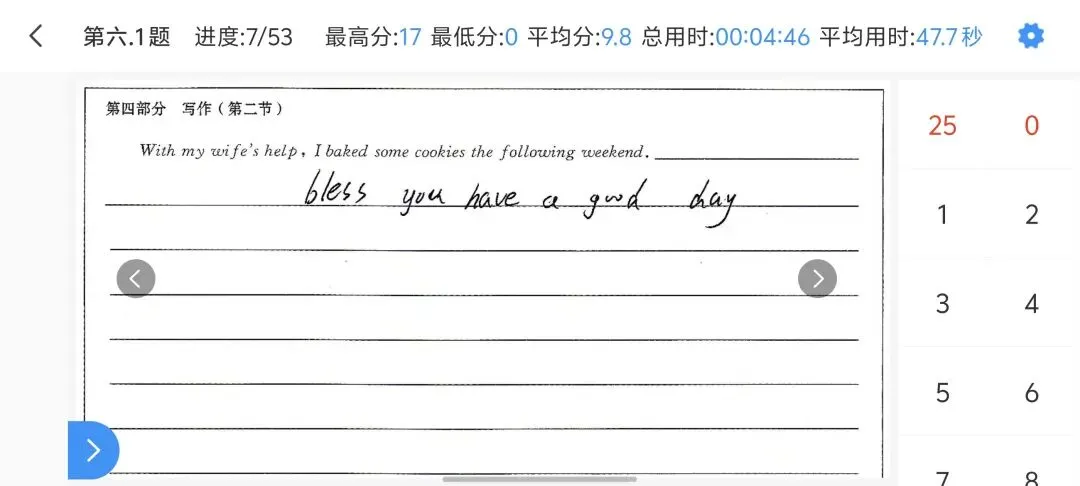 第六.1题 进度:7/53 最高分:17 最低分:0 平均分:9.8 总用时:00:04:46 平均用时:47.7秒
第四部分 写作（第二节）
With my wife's help, I baked some cookies the following weekend.
bless you have a good day
25 0
1 2
3 4
5 6
7 8